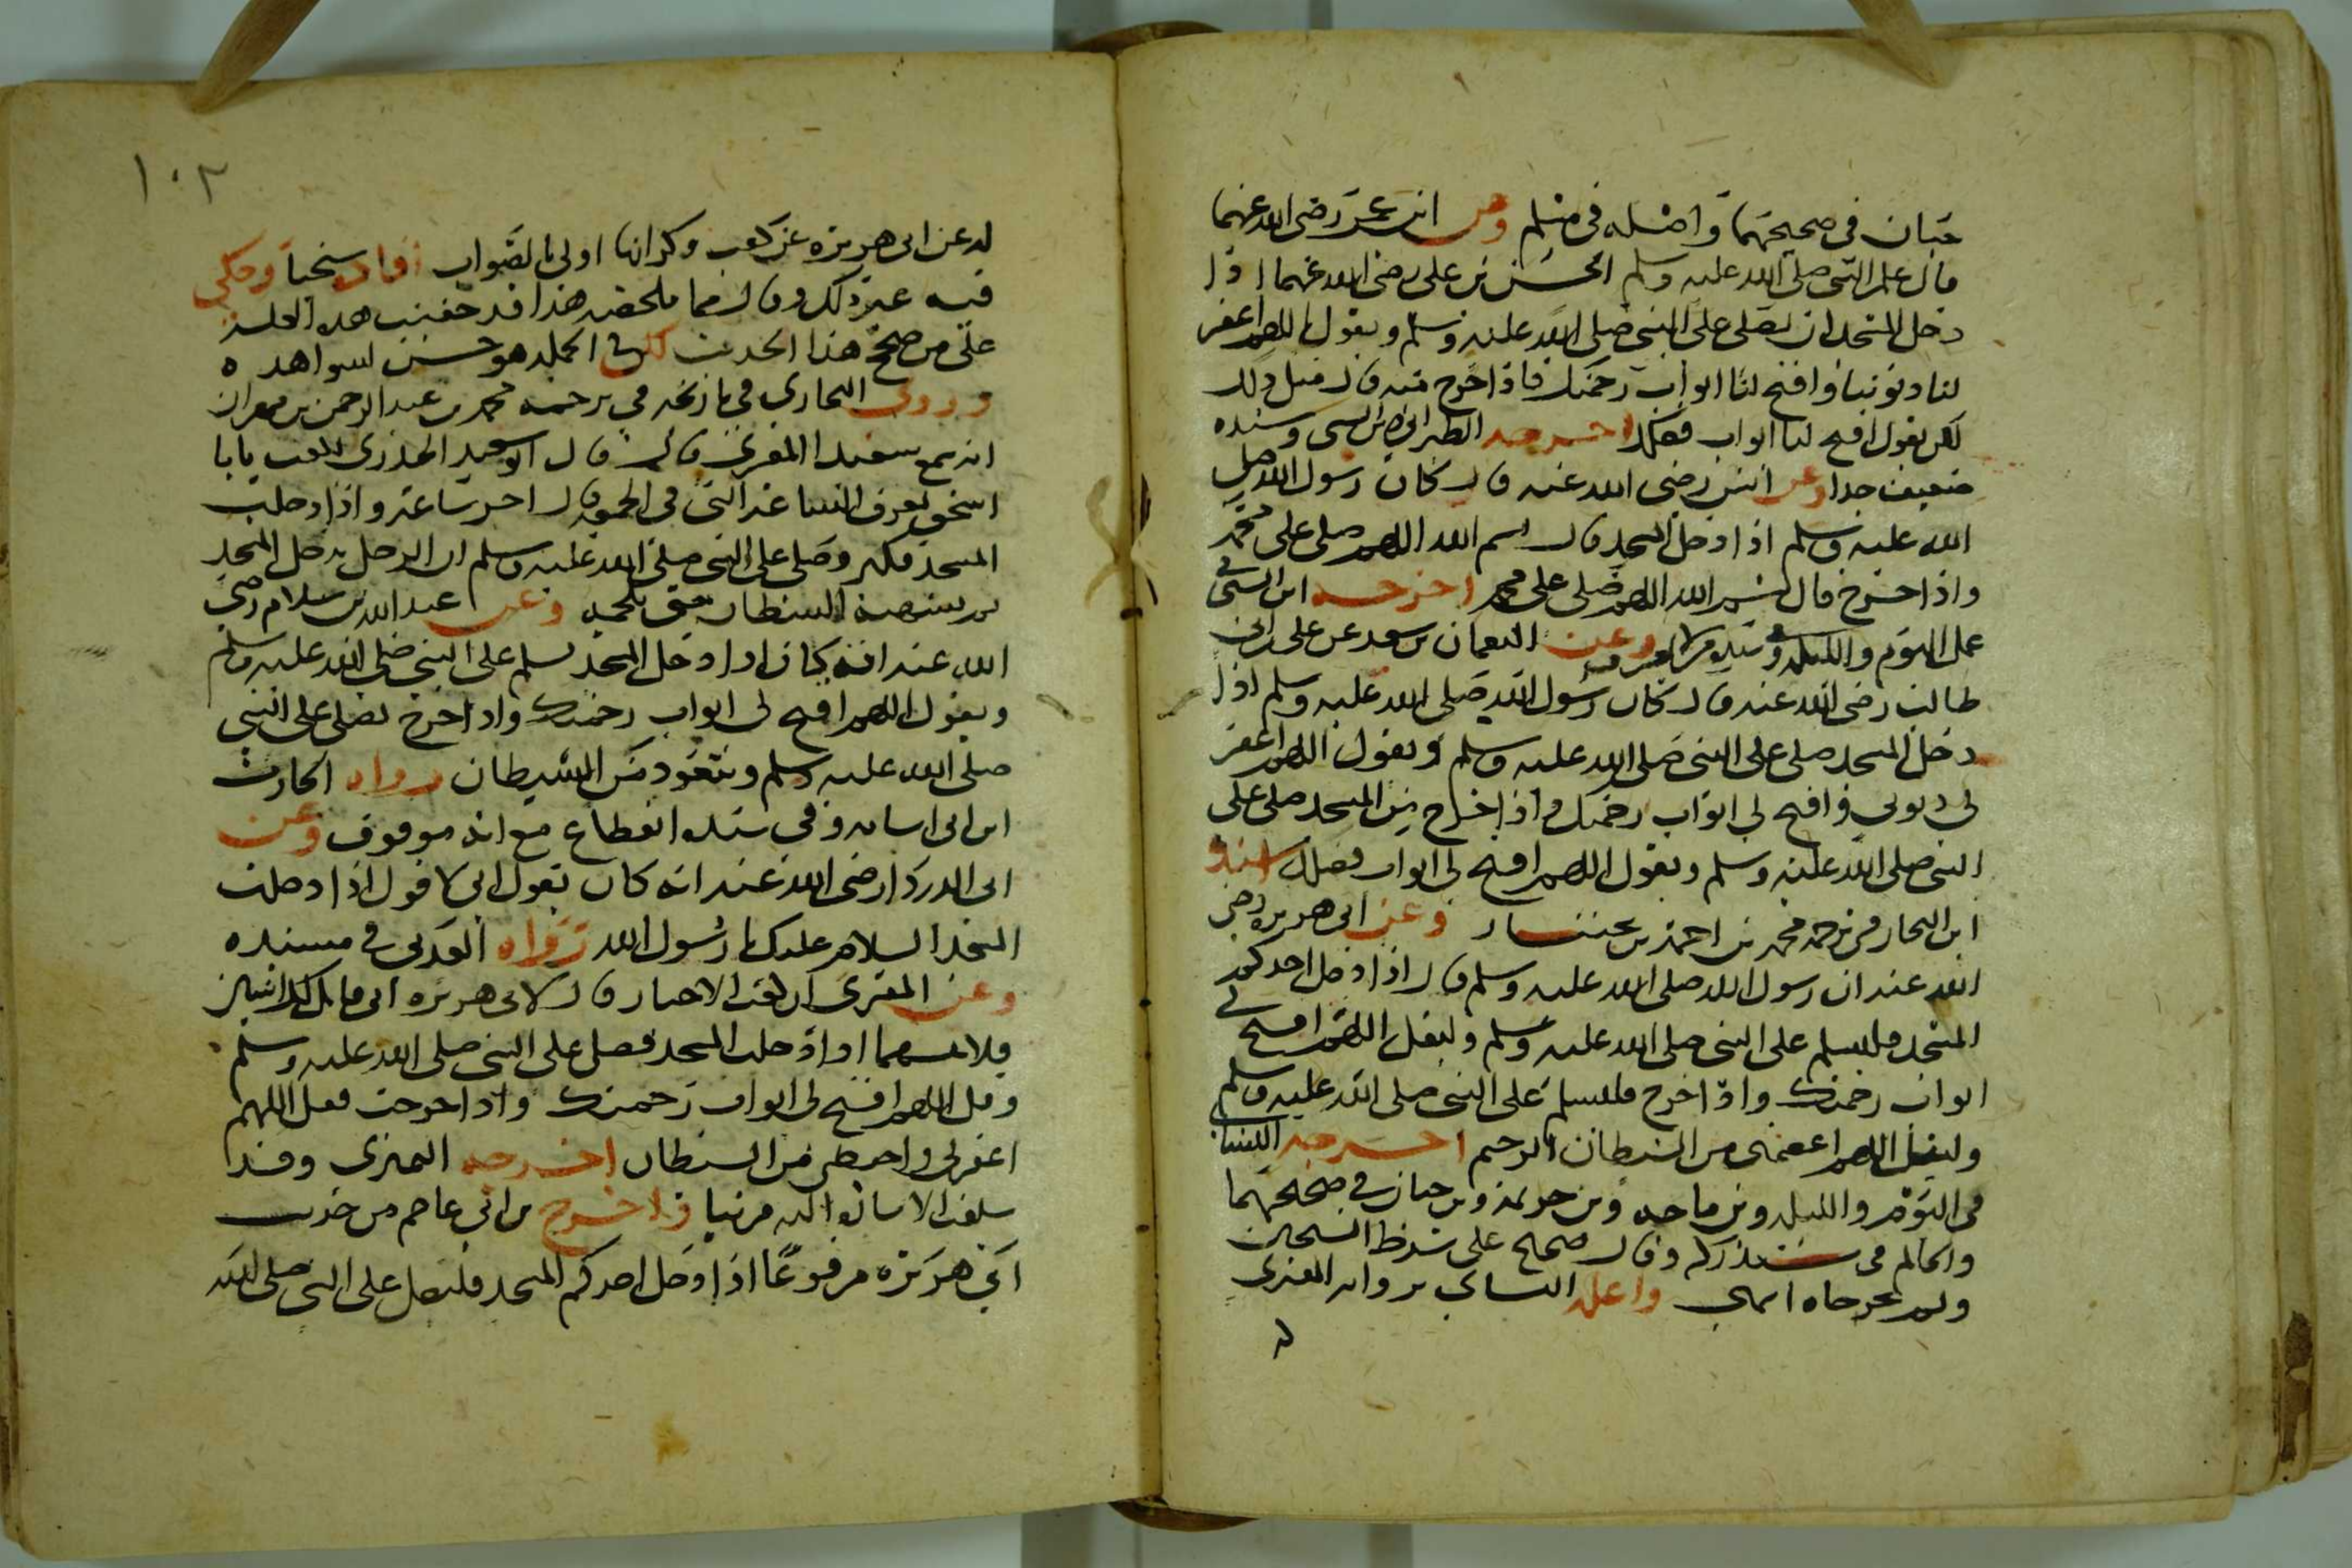 حبان في صحيحهما واصله في مسلم وعن ابن عمر رضى الله عنهما
قال علم النبي صلى الله عليه وسلم الحسن بن على رضى الله عنهما اذا
دخل المسجد ان يصلى على النبي صلى الله عليه وسلم ويقول اللهم اغفر
لنا ذنوبنا وافتح لنا ابواب رحمتك فاذا خرج منه قال مثل ذلك
لكن يقول افتح لنا ابواب فضلك اخرجه الطبراني وابن السني وسنده
ضعيف جدا وعن انس رضى الله عنه قال كان رسول الله صلى
الله عليه وسلم اذا دخل المسجد قال بسم الله اللهم صلى على محمد
واذا خرج قال بسم الله اللهم صلى على محمد اخرجه ابن السني في
عمل اليوم والليلة وفي سنده من لا يعرف وعن النعمان بن سعد عن على ابن ابي
طالب رضى الله عنه قال كان رسول الله صلى الله عليه وسلم اذا
دخل المسجد صلى على النبي صلى الله عليه وسلم ويقول اللهم اغفر
لى ذنوبي وافتح لي ابواب رحمتك واذا خرج من المسجد صلى على
النبي صلى الله عليه وسلم ويقول اللهم افتح لى ابواب فضلك اسنده
ابن النجار في ترجمة محمد بن احمد بن وعن ابى هريرة رضى
الله عنه ان رسول الله صلى الله عليه وسلم قال اذا دخل احدكم
المسجد فليسلم على النبي صلى الله عليه وسلم وليقل اللهم افتح لى
ابواب رحمتك واذا خرج فليسلم على النبي صلى الله عليه وسلم
وليقل اللهم اعصمنى من الشيطان الرجيم اخرجه النسائي
في اليوم والليلة وبن ماجه وبن خزيمة وبن حبان في صحيحهما
والحاكم في مستدركه وقال صحيح على شرط الشيخين
ولم يخرجاه انتهى واعله النسائي برواية المقبري
له
١٠٢
له عن ابى هريرة عن كعب وذكر انها اولى بالصواب افاده شيخنا وحكى
فيه غير ذلك وقال مما ملخصه هذا قد خفيت هذه العلة
على من صحح هذا الحديث لكن في الجملة هو حسن لشواهده
وروى البخاري في تاريخه في ترجمة محمد بن عبد الرحمن بن مهران
انه سمع سعيدا المقبري قال قال ابو سعيد الخدري لكعب يا ابا
اسحق تعرف لنا الساعة التي في الجمعة قال اخر ساعة واذا دخلت
المسجد فكبر وصلى على النبي صلى الله عليه وسلم ان الرجل يدخل المسجد
الشيطان حتى وعن عبد الله بن سلام رضي
الله عنه انه كان اذا دخل المسجد سلم على النبي صلى الله عليه وسلم
ويقول اللهم افتح لى ابواب رحمتك واذا خرج يصلى على النبي
صلى الله عليه وسلم ويتعوذ من الشيطان رواه الحارث
ابن ابى اسامه وفي سنده انقطاع مع انه موقوف وعن
ابى الدرداء رضى الله عنه انه كان يقول انى لا قول اذا دخلت
المسجد السلام عليك يا رسول الله رواه العدني في مسنده
وعن المقبري ان كعب الاحبار قال لابى هريرة انى قايل لك اثنين
فلا تنسهما اذا دخلت المسجد فصل على النبي صلى الله عليه وسلم
وقل اللهم افتح لى ابواب رحمتك واذا خرجت فقل اللهم
اغفر لى واحفظني من الشيطان اخرجه النميري وقد
سلفت الاشارة اليه قريبا واخرج بن ابي عاصم من حديث
ابي هريرة مرفوعًا اذا دخل احدكم المسجد فليصل على النبي صلى الله